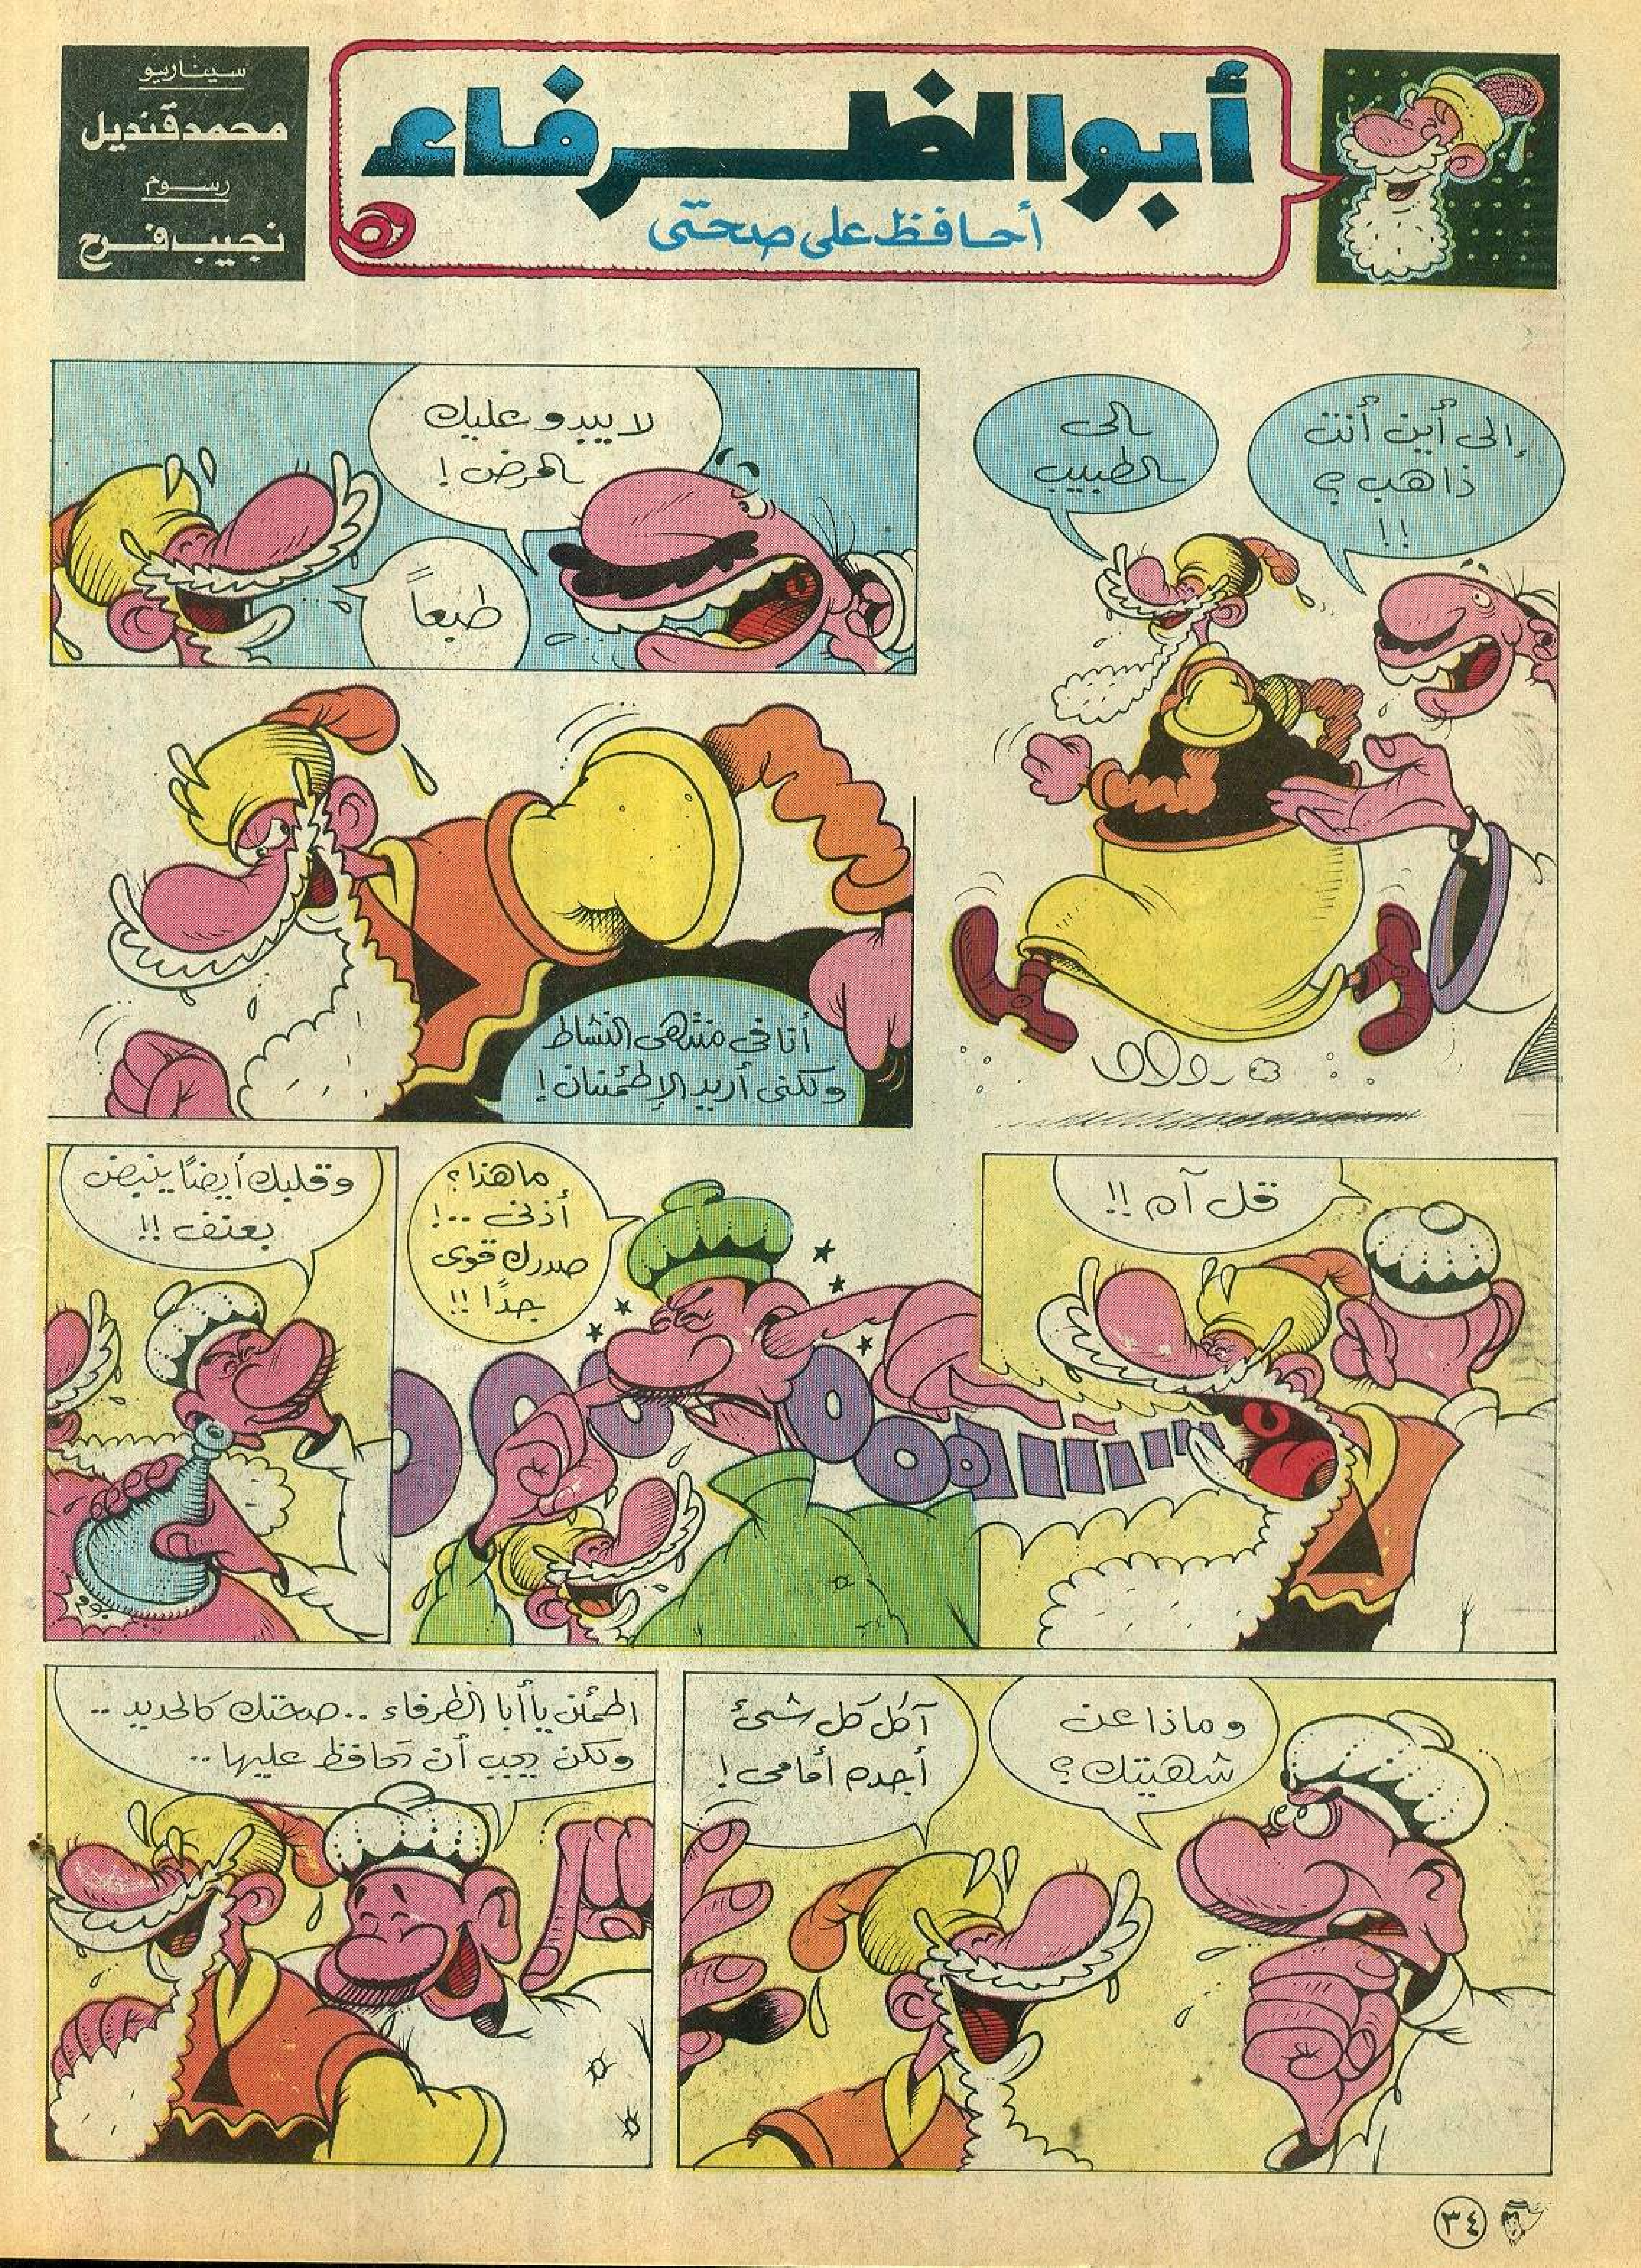 أبو الظرفاء
أحافظ على صحتى
سيناريو
محمد قنديل
رسوم
نجيب فرح
إلى أين أنت
ذاهب ؟
!!
إلى
الطبيب
لا يبدو عليك
المرض !
طبعاً
أنا فى منتهى النشاط
ولكنى أريد الإطمئنان !
قل آه !!
ما هذا ؟
أذنى ..!
صدرك قوى
جدًا !!
وقلبك أيضًا ينبض
بعنف !!
و ماذا عن
شهيتك ؟
آكل كل شئ
أجده أمامى !
اطمئن يا أبا الظرفاء .. صحتك كالحديد ..
ولكن يجب أن تحافظ عليها ..
٣٤